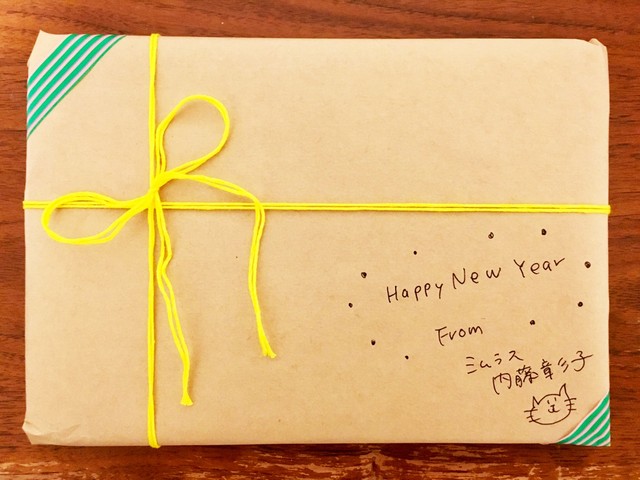 Happy New Year
From
ミムラス
内藤彰子